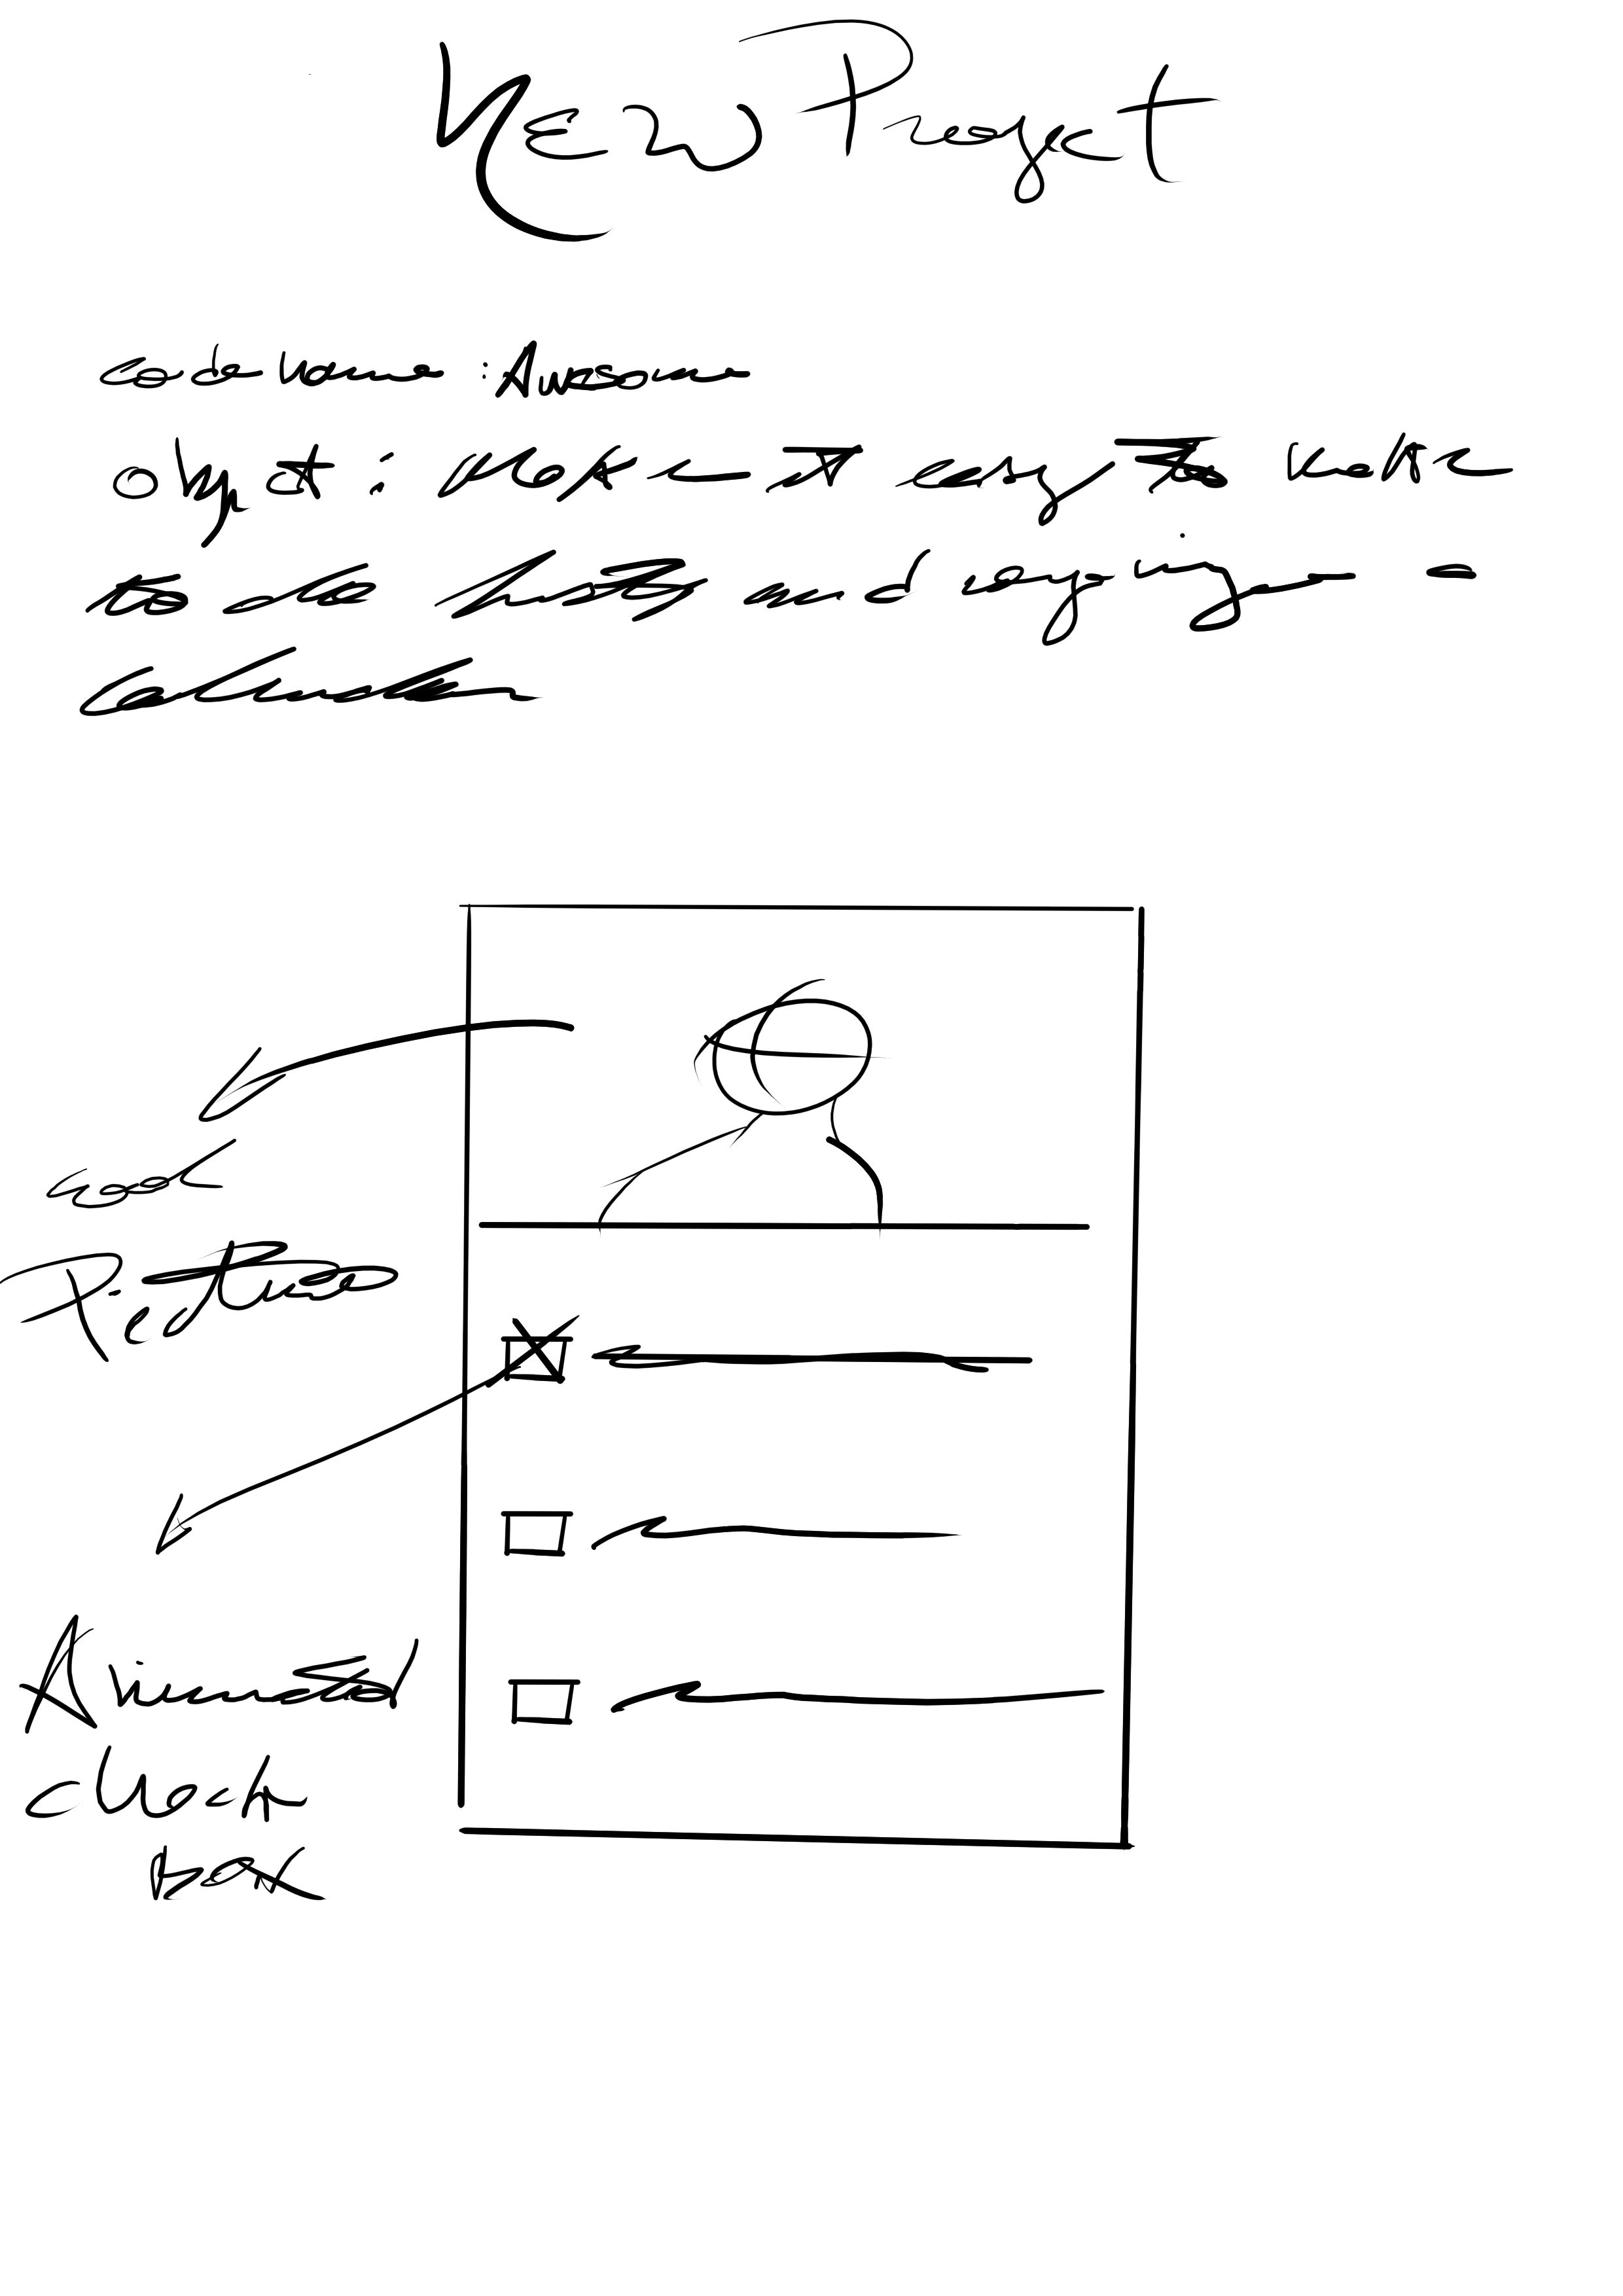 New Project
code name : Awesome
object : Make it easy to make
to do lists and enjoying a
cool
Picture
Animated
check
box